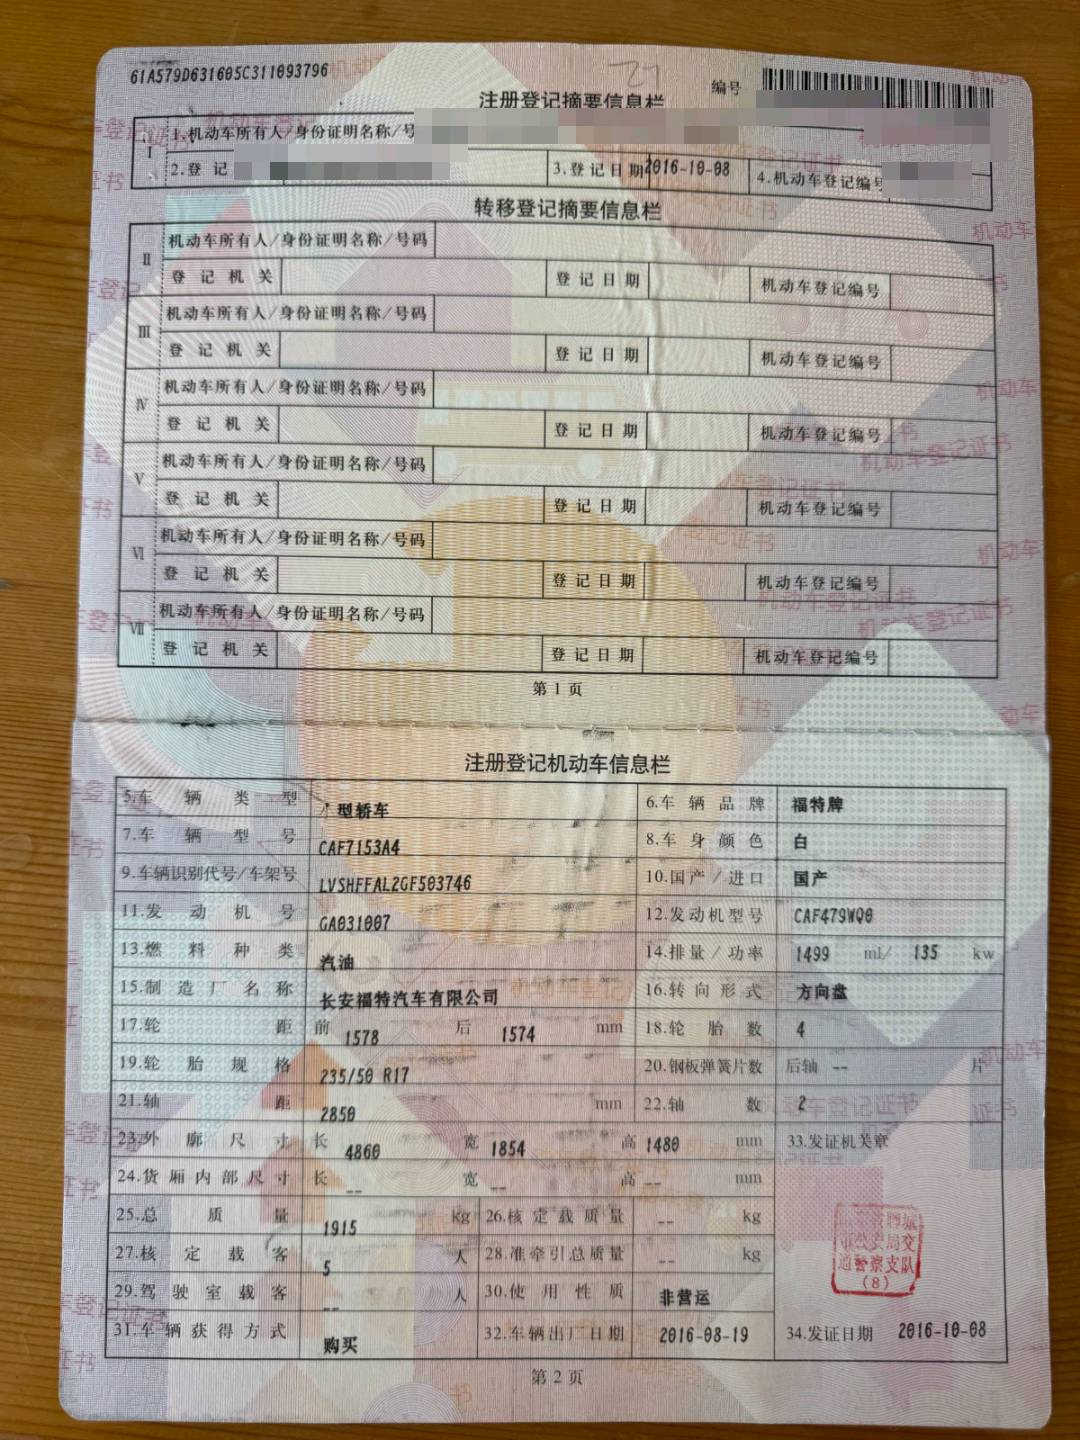 61A579D631605C311093796
编号
注册登记摘要信息栏
I 1.机动车所有人/身份证明名称/号
2.登记 3.登记日期 2016-10-08 4.机动车登记编号
转移登记摘要信息栏
II 机动车所有人/身份证明名称/号码
登记机关 登记日期 机动车登记编号
III 机动车所有人/身份证明名称/号码
登记机关 登记日期 机动车登记编号
IV 机动车所有人/身份证明名称/号码
登记机关 登记日期 机动车登记编号
V 机动车所有人/身份证明名称/号码
登记机关 登记日期 机动车登记编号
VI 机动车所有人/身份证明名称/号码
登记机关 登记日期 机动车登记编号
VII 机动车所有人/身份证明名称/号码
登记机关 登记日期 机动车登记编号
第1页
注册登记机动车信息栏
5.车辆类型 型轿车 6.车辆品牌 福特牌
7.车辆型号 CAF7153A4 8.车身颜色 白
9.车辆识别代号/车架号 LVSHFFAL2GF503746 10.国产/进口 国产
11.发动机号 GA031007 12.发动机型号 CAF479WQ0
13.燃料种类 汽油 14.排量/功率 1499 ml/ 135 kw
15.制造厂名称 长安福特汽车有限公司 16.转向形式 方向盘
17.轮距 前 1578 后 1574 mm 18.轮胎数 4
19.轮胎规格 235/50 R17 20.钢板弹簧片数 后轴 -- 片
21.轴距 2850 mm 22.轴数 2
23.外廓尺寸 长 4860 宽 1854 高 1480 mm 33.发证机关章
24.货厢内部尺寸 长 -- 宽 -- 高 -- mm
25.总质量 1915 kg 26.核定载质量 -- kg
27.核定载客 5 人 28.准牵引总质量 -- kg
29.驾驶室载客 -- 人 30.使用性质 非营运
31.车辆获得方式 购买 32.车辆出厂日期 2016-08-19 34.发证日期 2016-10-08
局交
通警察支队
(8)
第2页